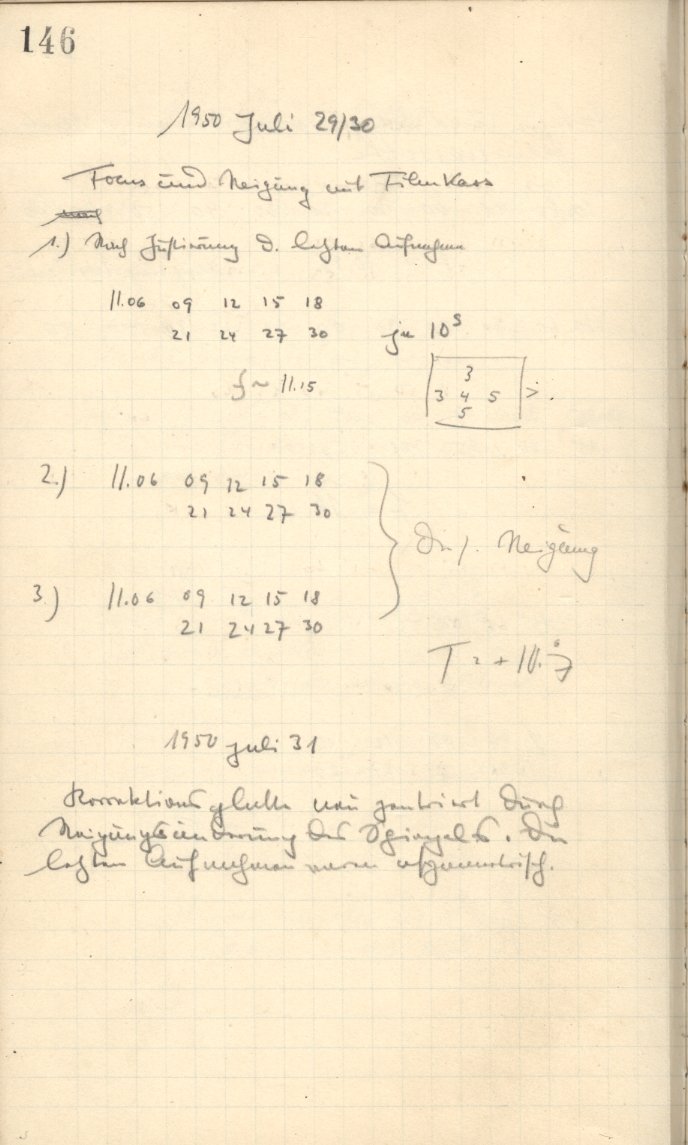 146
1950 Juli 29/30
Focus und Neigung mit Filmkass
1.) Nach Justierung d. letzten Aufnahme
11.06 09 12 15 18
21 24 27 30 je 10s
f ~ 11.15
3
3 4 5 >.
5
2.) 11.06 09 12 15 18
21 24 27 30
Neigung
3.) 11.06 09 12 15 18
21 24 27 30
T =
1950 Juli 31
Korrektionsplatte neu zentriert durch
Neigungsänderung des Spiegels. Die
letzten Aufnahmen waren asymmetrisch.